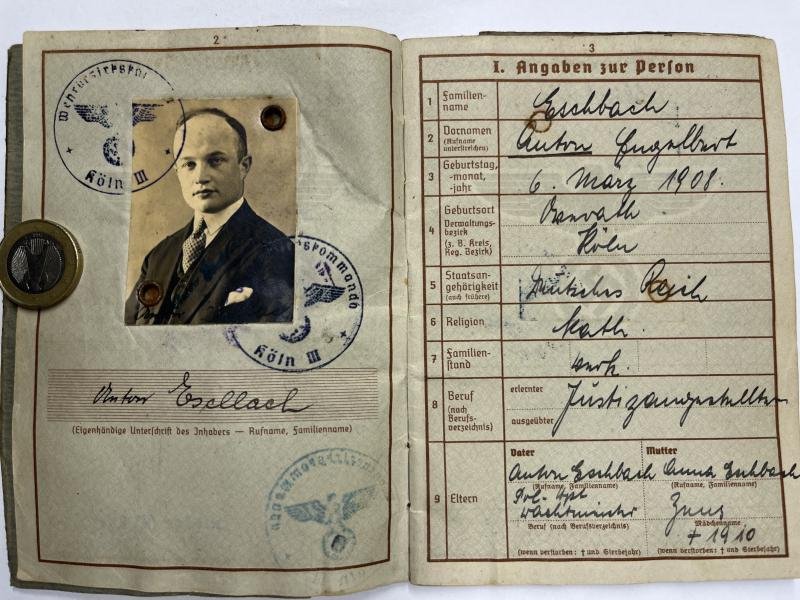 2
Köln III
kommando
Köln III
Anton Eschbach
(Eigenhändige Unterschrift des Inhabers — Rufname, Familienname)
3
I. Angaben zur Person
1 Familien-
name
Eschbach
2 Vornamen
(Rufname
unterstreichen)
Anton Engelbert
3 Geburtstag,
-monat,
-jahr
6. März 1908.
4 Geburtsort
Verwaltungs-
bezirk
(z. B. Kreis,
Reg. Bezirk)
Köln
5 Staatsan-
gehörigkeit
(auch frühere)
Deutsches Reich
6 Religion
Kath.
7 Familien-
stand
verh.
8 Beruf
(nach
Berufs-
verzeichnis)
erlernter
ausgeübter
Justizangestellter
9 Eltern
Vater
Anton Eschbach
(Rufname, Familienname)
Pol.
wachtmeister
Beruf (nach Berufsverzeichnis)
(wenn verstorben: † und Sterbejahr)
Mutter
Anna Eschbach
(Rufname, Familienname)
Mädchenname
† 1910
(wenn verstorben: † und Sterbejahr)